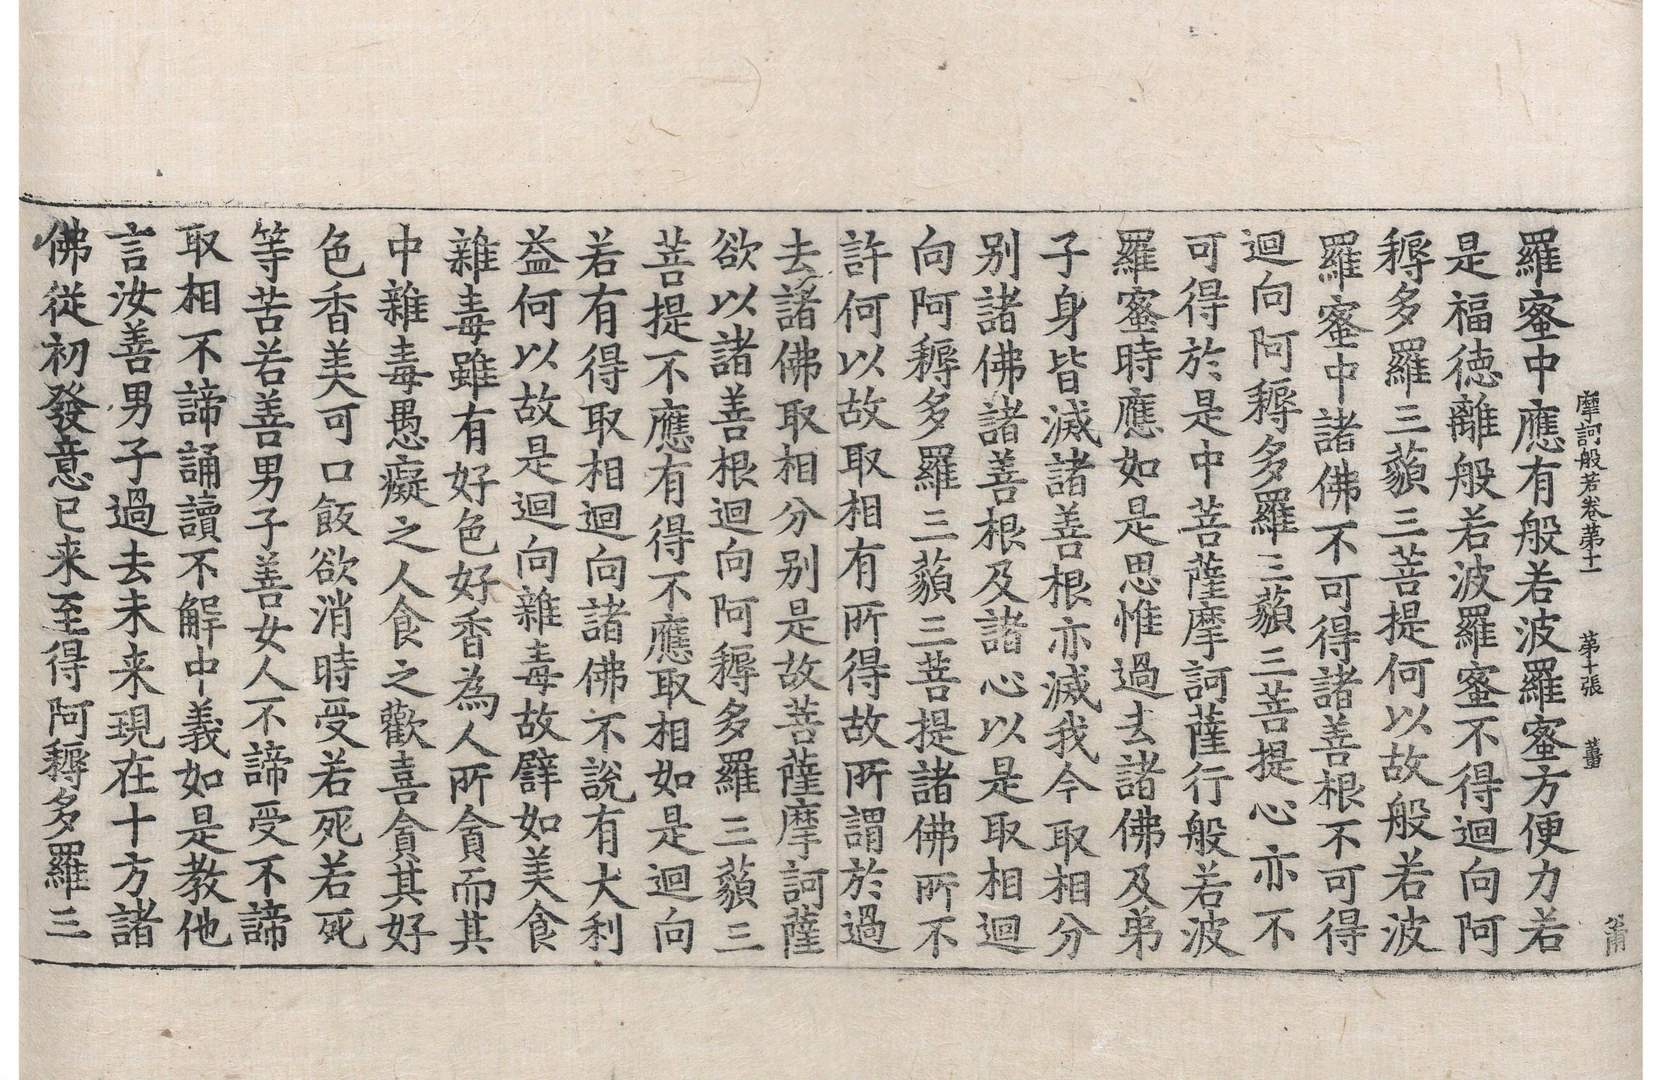 摩訶般若卷第十一　第十張　薑
羅蜜中應有般若波羅蜜方便力若
是福德離般若波羅蜜不得迴向阿
耨多羅三藐三菩提何以故般若波
羅蜜中諸佛不可得諸善根不可得
迴向阿耨多羅三藐三菩提心亦不
可得於是中菩薩摩訶薩行般若波
羅蜜時應如是思惟過去諸佛及弟
子身皆滅諸善根亦滅我今取相分
別諸佛諸善根及諸心以是取相迴
向阿耨多羅三藐三菩提諸佛所不
許何以故取相有所得故所謂於過
去諸佛取相分別是故菩薩摩訶薩
欲以諸善根迴向阿耨多羅三藐三
菩提不應有得不應取相如是迴向
若有得取相迴向諸佛不說有大利
益何以故是迴向雜毒故譬如美食
雜毒雖有好色好香為人所貪而其
中雜毒愚癡之人食之歡喜貪其好
色香美可口飯欲消時受若死若死
等苦若善男子善女人不諦受不諦
取相不諦誦讀不解中義如是教他
言汝善男子過去未来現在十方諸
佛從初發意已来至得阿耨多羅三